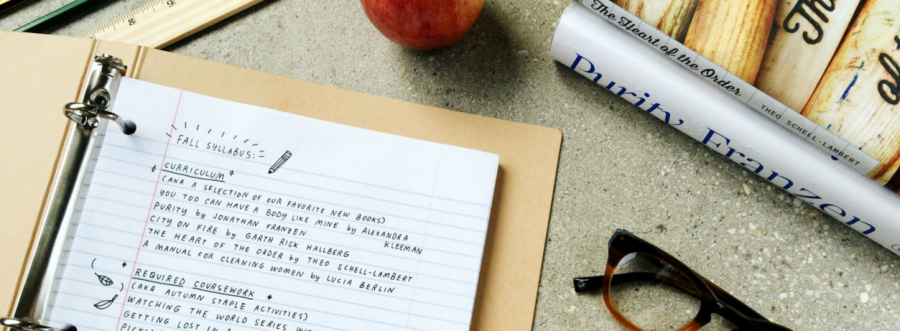 FALL SYLLABUS:
CURRICULUM
(AKA A SELECTION OF OUR FAVORITE NEW BOOKS)
YOU TOO CAN HAVE A BODY LIKE MINE by ALEXANDRA
KLEEMAN
PURITY by JONATHAN FRANZEN
CITY ON FIRE by GARTH RISK HALLBERG
THE HEART OF THE ORDER by THEO SCHELL-LAMBERT
A MANUAL FOR CLEANING WOMEN by LUCIA BERLIN
REQUIRED COURSEWORK
(AKA AUTUMN STAPLE ACTIVITIES)
WATCHING THE WORLD SERIES
GETTING LOST IN A
The Heart of the Order
THEO SCHELL-LAMBERT
Purity Franzen
The
of th